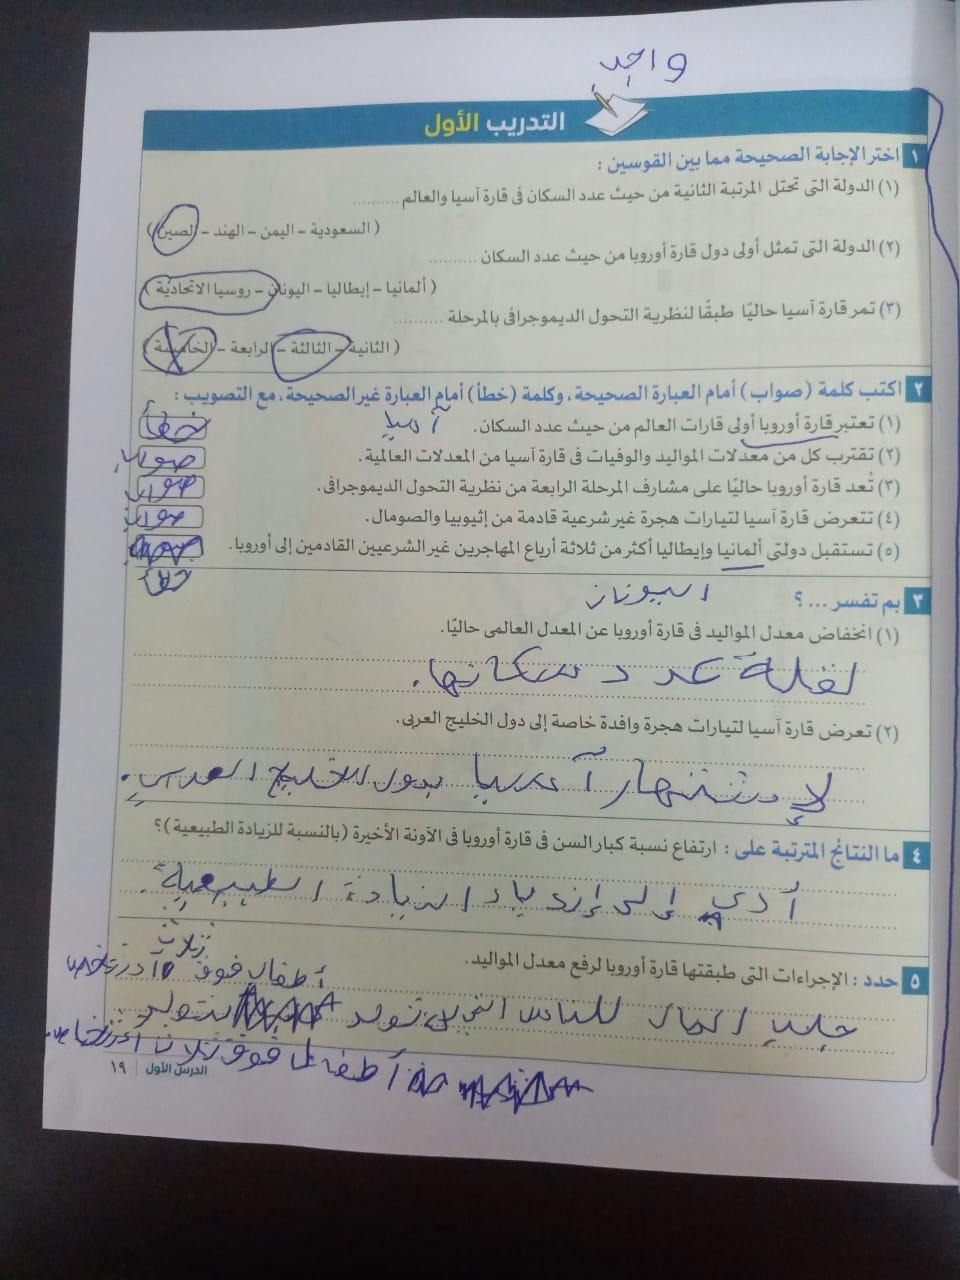 واجب
التدريب الأول
١ اختر الإجابة الصحيحة مما بين القوسين :
(١) الدولة التى تحتل المرتبة الثانية من حيث عدد السكان فى قارة آسيا والعالم ..........
( السعودية - اليمن - الهند - الصين )
(٢) الدولة التى تمثل أولى دول قارة أوروبا من حيث عدد السكان ..........
( ألمانيا - إيطاليا - اليونان - روسيا الاتحادية )
(٣) تمر قارة آسيا حاليًا طبقًا لنظرية التحول الديموجرافى بالمرحلة ..........
( الثانية - الثالثة - الرابعة - الخامسة )
٢ اكتب كلمة (صواب) أمام العبارة الصحيحة، وكلمة (خطأ) أمام العبارة غير الصحيحة، مع التصويب :
آسيا
(١) تعتبر قارة أوروبا أولى قارات العالم من حيث عدد السكان. خطأ
(٢) تقترب كل من معدلات المواليد والوفيات فى قارة آسيا من المعدلات العالمية. صواب
(٣) تُعد قارة أوروبا حاليًا على مشارف المرحلة الرابعة من نظرية التحول الديموجرافى. صواب
(٤) تتعرض قارة آسيا لتيارات هجرة غير شرعية قادمة من إثيوبيا والصومال. صواب
(٥) تستقبل دولتى ألمانيا وإيطاليا أكثر من ثلاثة أرباع المهاجرين غير الشرعيين القادمين إلى أوروبا.
خطأ
اليونان
٣ بم تفسر ... ؟
(١) انخفاض معدل المواليد فى قارة أوروبا عن المعدل العالمى حاليًا.
لقلة عدد سكانها.
(٢) تعرض قارة آسيا لتيارات هجرة وافدة خاصة إلى دول الخليج العربى.
لإشتهار آسيا بدول الخليج العربي.
٤ ما النتائج المترتبة على : ارتفاع نسبة كبار السن فى قارة أوروبا فى الآونة الأخيرة (بالنسبة للزيادة الطبيعية)؟
أدى إلى إزدياد الزيادة الطبيعية.
٥ حدد : الإجراءات التى طبقتها قارة أوروبا لرفع معدل المواليد.
ثلاث
أطفال فوق
جلب المال للناس التى تولد بتولد
أطفال فوق ثلاث
الدرس الأول | ١٩